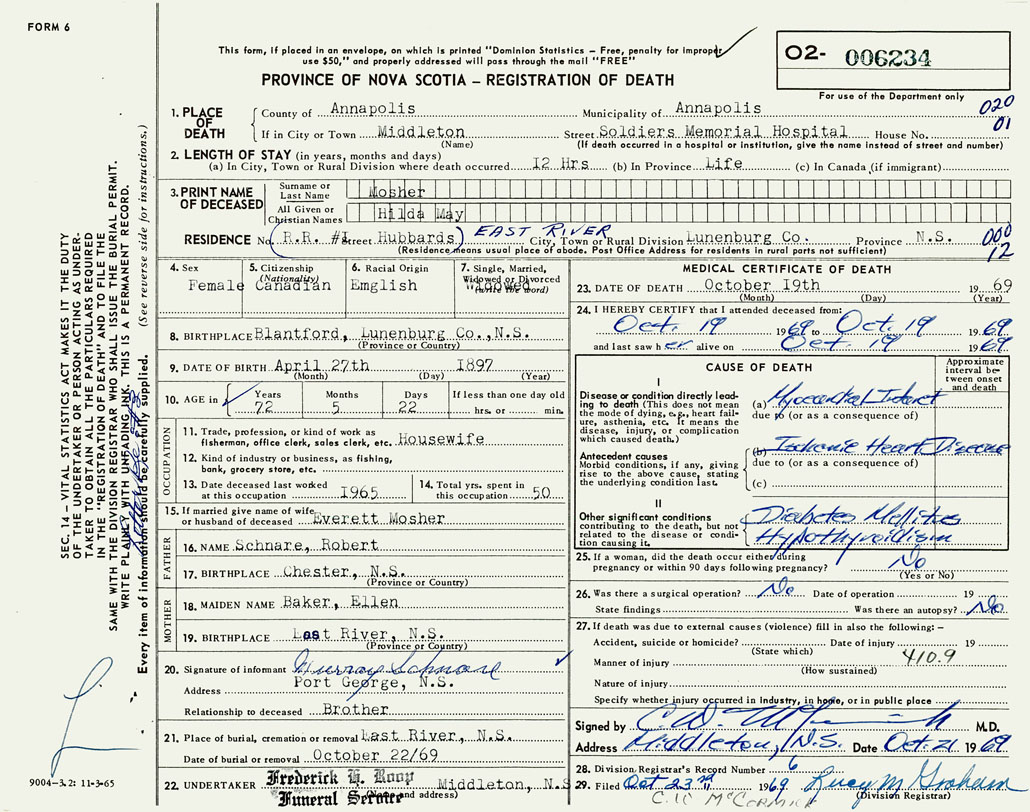 FORM 6
This form, if placed in an envelope, on which is printed "Dominion Statistics – Free, penalty for improper
use $50," and properly addressed will pass through the mail "FREE"
PROVINCE OF NOVA SCOTIA – REGISTRATION OF DEATH
02- 006234
For use of the Department only
020
01
1. PLACE OF DEATH
County of Annapolis Municipality of Annapolis
If in City or Town Middleton Street Soldiers Memorial Hospital House No.
(Name) (If death occurred in a hospital or institution, give the name instead of street and number)
2. LENGTH OF STAY (in years, months and days)
(a) In City, Town or Rural Division where death occurred 12 Hrs (b) In Province Life (c) In Canada (if immigrant)
3. PRINT NAME OF DECEASED
Surname or Last Name Mosher
All Given or Christian Names Hilda May
RESIDENCE No. R.R. #1 Street Hubbards) EAST RIVER City, Town or Rural Division Lunenburg Co. Province N.S. 000
12
(Residence means usual place of abode. Post Office Address for residents in rural parts not sufficient)
4. Sex
Female
5. Citizenship
(Nationality)
Canadian
6. Racial Origin
Emglish
7. Single, Married,
Widowed or Divorced
(write the word)
Widowed
8. BIRTHPLACE Blantford, Lunenburg Co., N.S.
(Province or Country)
9. DATE OF BIRTH April 27th 1897
(Month) (Day) (Year)
10. AGE in Years Months Days If less than one day old
72 5 22 hrs. or min.
OCCUPATION
11. Trade, profession, or kind of work as
fisherman, office clerk, sales clerk, etc. Housewife
12. Kind of industry or business, as fishing,
bank, grocery store, etc.
13. Date deceased last worked
at this occupation 1965
14. Total yrs. spent in
this occupation 50
15. If married give name of wife
or husband of deceased Everett Mosher
FATHER
16. NAME Schnare, Robert
17. BIRTHPLACE Chester, N.S.
(Province or Country)
MOTHER
18. MAIDEN NAME Baker, Ellen
19. BIRTHPLACE East River, N.S.
(Province or Country)
20. Signature of informant Murray Schnare
Address Port George, N.S.
Relationship to deceased Brother
21. Place of burial, cremation or removal East River, N.S.
Date of burial or removal October 22/69
22. UNDERTAKER Frederick H. Roop Middleton, N.S
Funeral Service
(Name and address)
MEDICAL CERTIFICATE OF DEATH
23. DATE OF DEATH October 19th 19 69
(Month) (Day) (Year)
24. I HEREBY CERTIFY that I attended deceased from:
Oct. 19 1969 to Oct. 19 1969
and last saw her alive on Oct. 19 1969
CAUSE OF DEATH
Approximate interval between onset and death
I
Disease or condition directly leading to death (This does not mean the mode of dying, e.g., heart failure, asthenia, etc. It means the disease, injury, or complication which caused death.)
(a) Myocardial Infarct
due to (or as a consequence of)
Antecedent causes
Morbid conditions, if any, giving rise to the above cause, stating the underlying condition last.
(b) Ischemic Heart Disease
due to (or as a consequence of)
(c)
II
Other significant conditions
contributing to the death, but not related to the disease or condition causing it.
Diabetes Mellitus
Hypothyroidism
25. If a woman, did the death occur either during
pregnancy or within 90 days following pregnancy? No
(Yes or No)
26. Was there a surgical operation? No Date of operation 19
State findings Was there an autopsy? No
27. If death was due to external causes (violence) fill in also the following: –
Accident, suicide or homicide? Date of injury 19
(State which)
Manner of injury 410.9
(How sustained)
Nature of injury
Specify whether injury occurred in industry, in home, or in public place
Signed by M.D.
Address Middleton, N.S. Date Oct. 21 1969
28. Division Registrar's Record Number 6
29. Filed Oct 23rd 1969 Lucy M Graham
(Division Registrar)
C.W McCORMICK
SEC. 14 – VITAL STATISTICS ACT MAKES IT THE DUTY
OF THE UNDERTAKER OR PERSON ACTING AS UNDER-
TAKER TO OBTAIN ALL THE PARTICULARS REQUIRED
IN THE "REGISTRATION OF DEATH" AND TO FILE THE
SAME WITH THE DIVISION REGISTRAR WHO SHALL ISSUE THE BURIAL PERMIT.
WRITE PLAINLY WITH UNFADING INK. THIS IS A PERMANENT RECORD.
Every item of information should be carefully supplied. (See reverse side for instructions.)
9004-3.2: 11-3-65